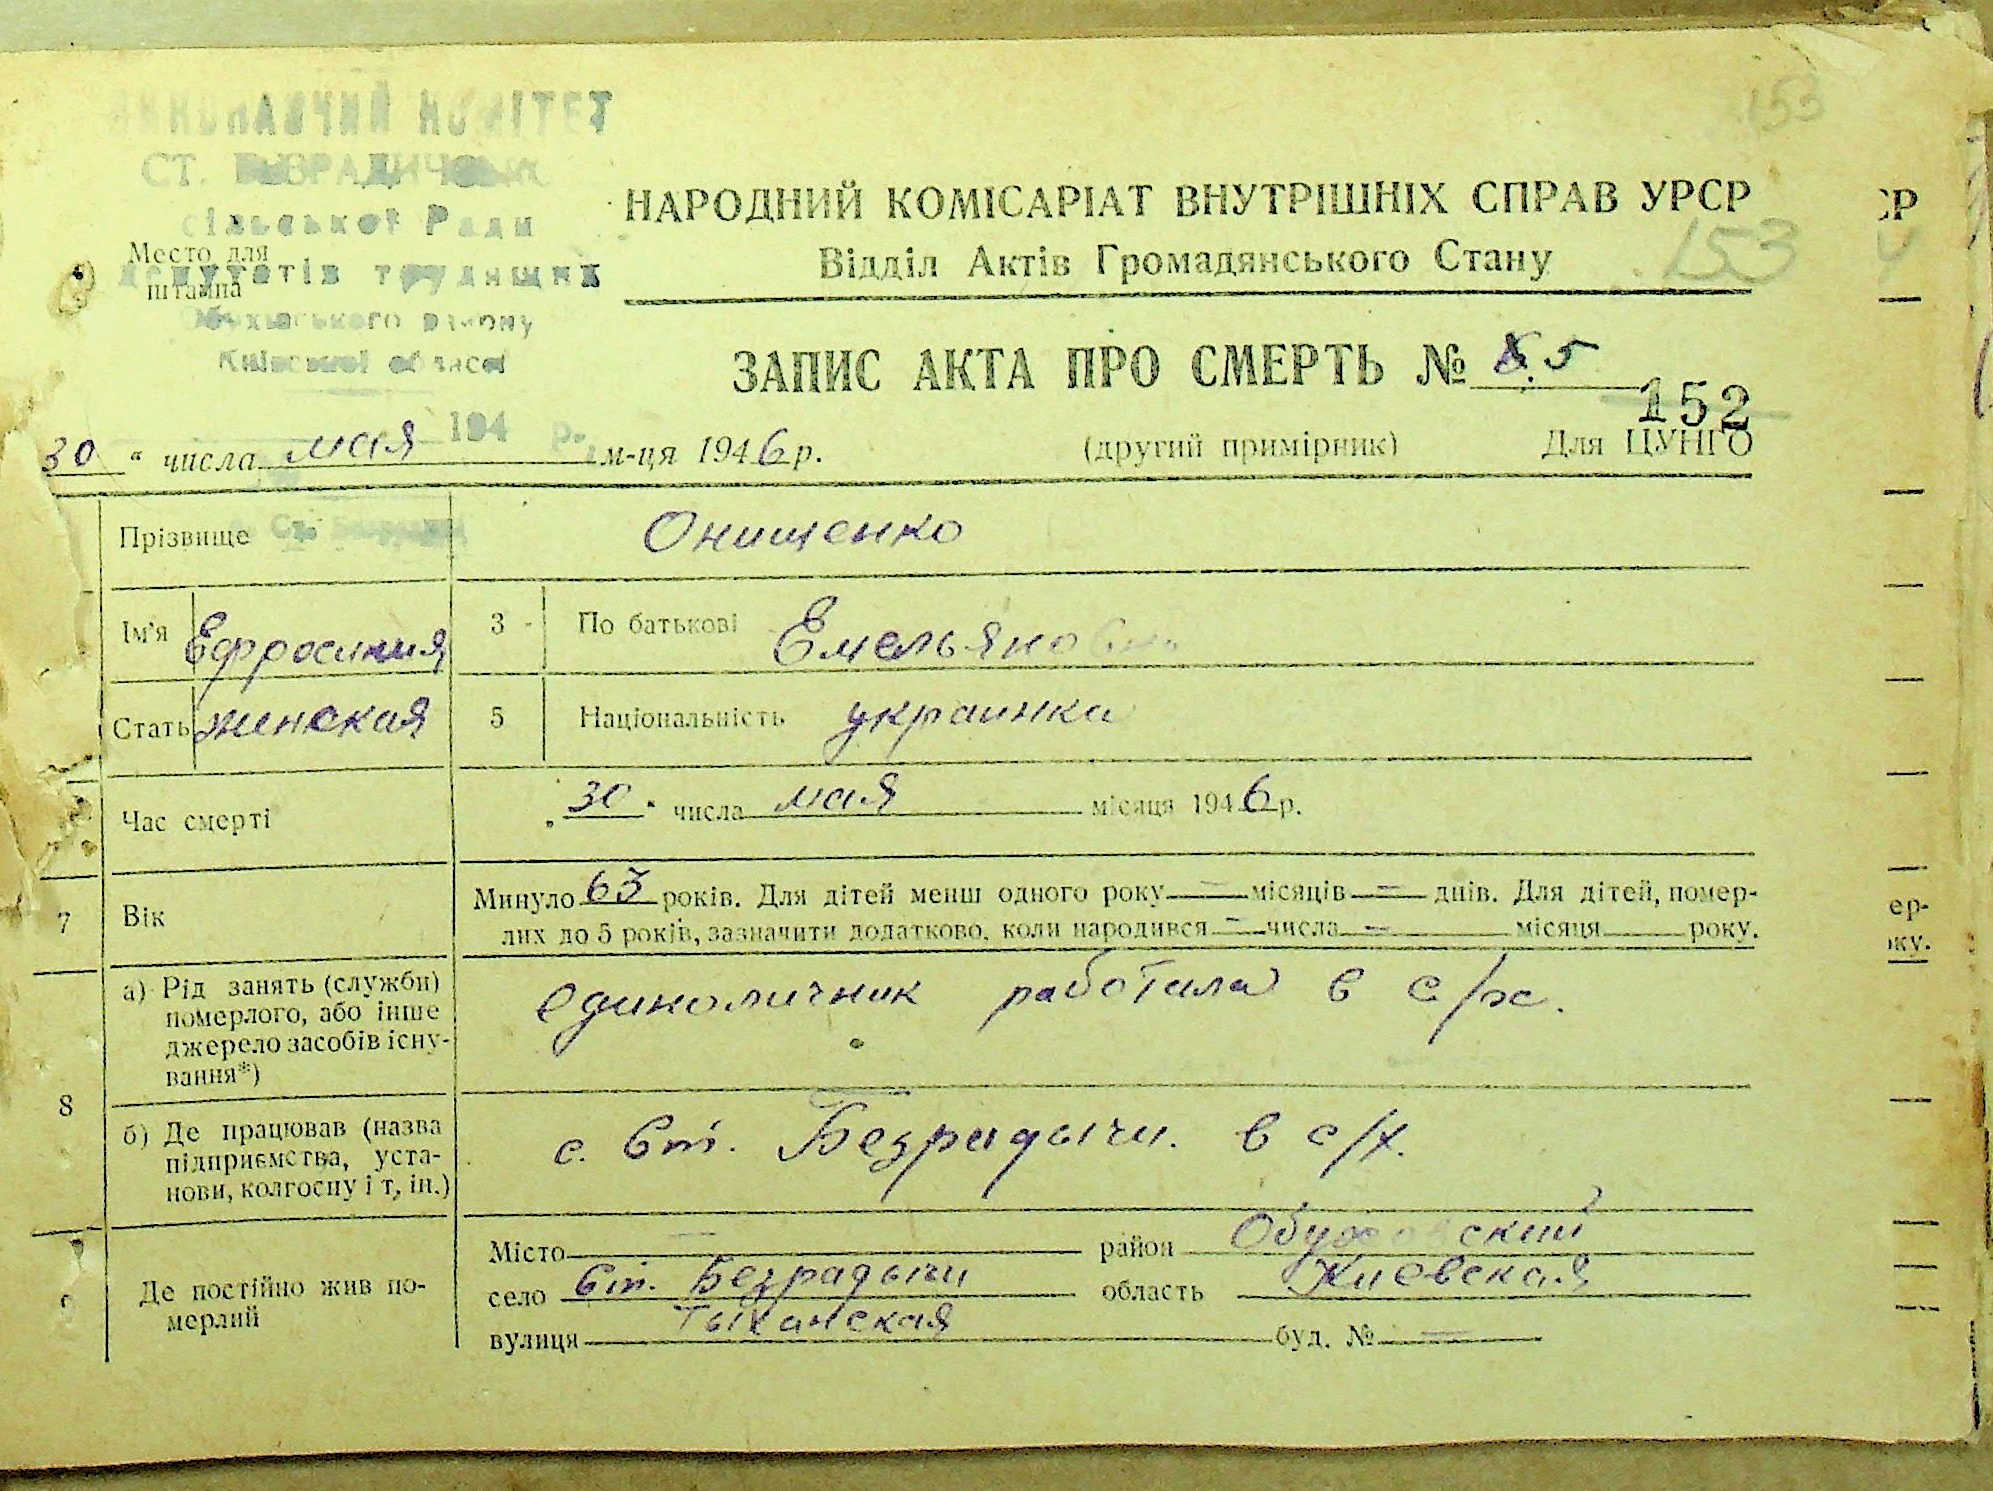 ВИКОНАВЧИЙ КОМІТЕТ
СТ. БЕЗРАДИЧІВСЬК
сільської Ради
Место для
штампа
депутатів трудящих
Обухівського району
Київської області
194 р.
153
НАРОДНИЙ КОМІСАРІАТ ВНУТРІШНІХ СПРАВ УРСР
Відділ Актів Громадянського Стану
153
ЗАПИС АКТА ПРО СМЕРТЬ № 5
152
30 " числа мая м-ця 1946 р. (другий примірник) Для ЦУНГО
Прізвище Онищенко
Ім'я Ефросиния 3 По батькові Емельяновна
Стать женская 5 Національність украинка
Час смерті „30" числа мая місяця 1946 р.
7 Вік Минуло 63 років. Для дітей менш одного року — місяців — днів. Для дітей, помер-
лих до 5 років, зазначити додатково, коли народився — числа — місяця року.
8 а) Рід занять (служби)
померлого, або інше
джерело засобів існу-
вання*)
единоличник работала в с/х.
б) Де працював (назва
підприємства, уста-
нови, колгоспу і т. ін.)
с. Ст. Безрадычи. в с/х.
Де постійно жив по-
мерлий
Місто — район Обуховский
село Ст. Безрадычи область Киевская
вулиця Тыханская буд. № —
СР
ер-
оку.